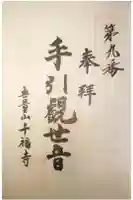 第九番
奉拝
手引觀世音
無量山千福寺